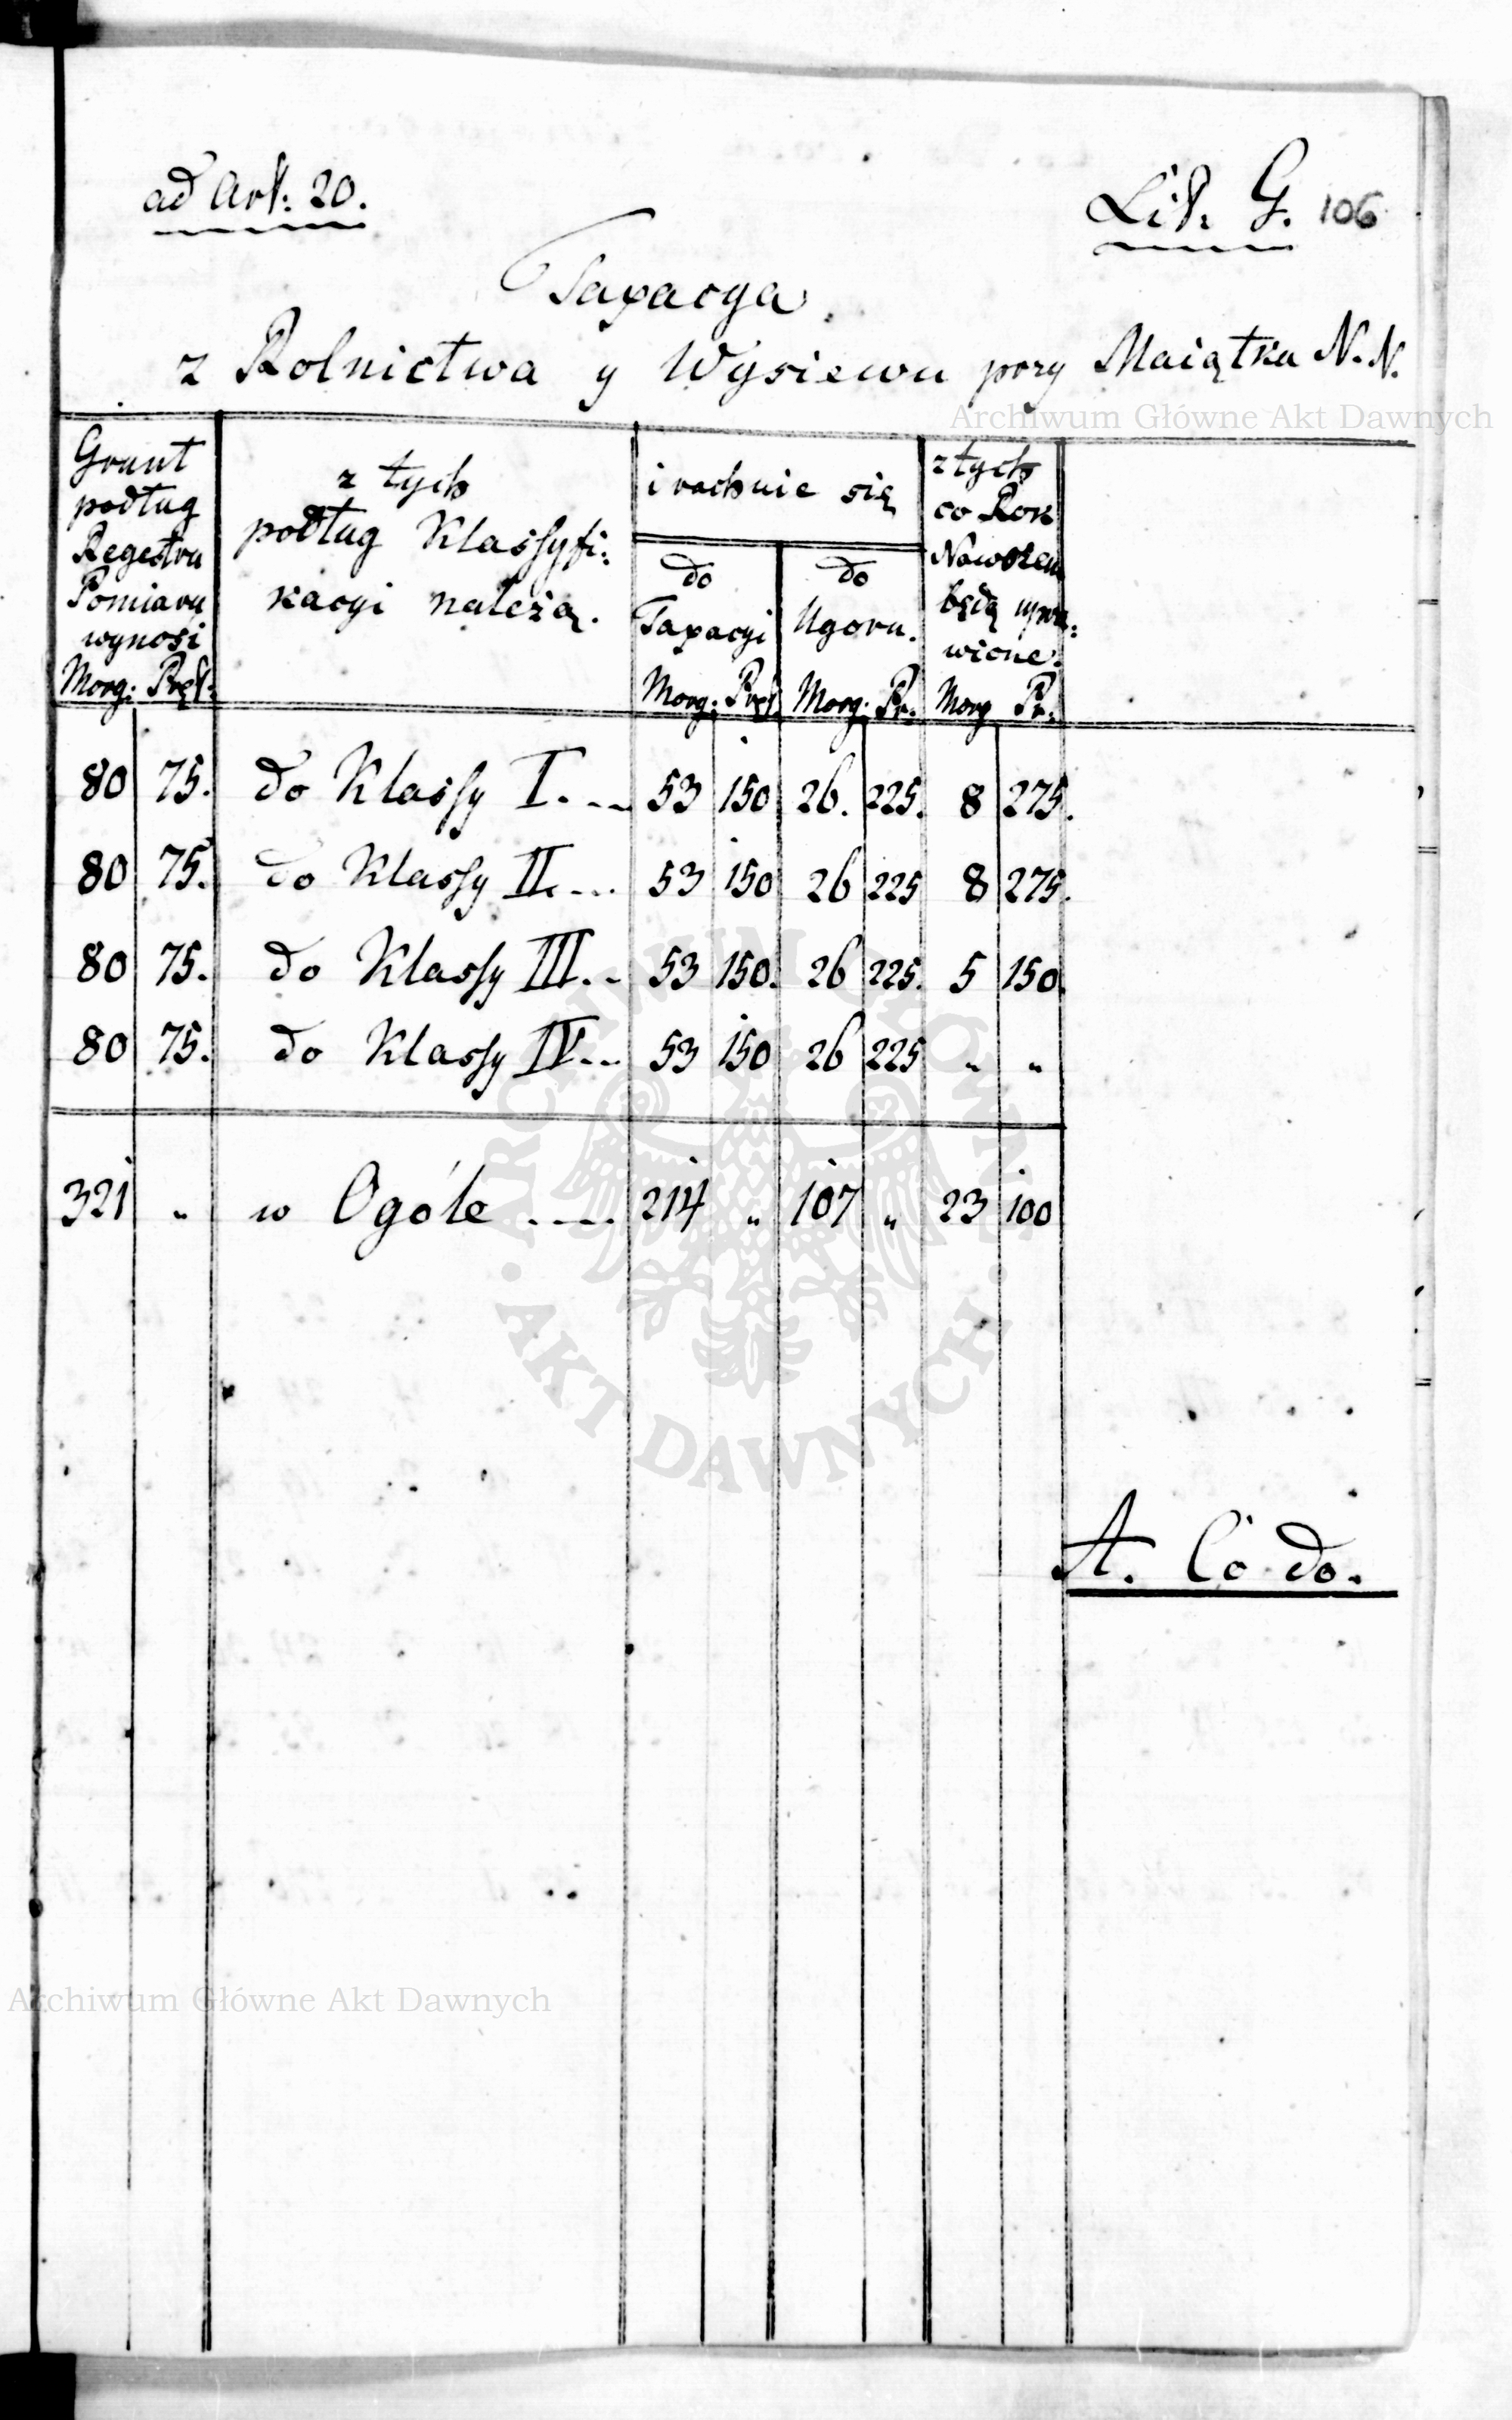 ad Art: 20.
Lit. G. 106
Taxacya
z Rolnictwa y Wysiewu przy Maiątku N.N.
Archiwum Główne Akt Dawnych
Grunt
podług
Regestru
Pomiaru
wynosi
Morg: Pręt:
z tych
podług Klassyfi:
kacyi należą.
i rachuie się
do
Taxacyi
Morg: Pręt
do
Ugoru.
Morg: Pr:
z tych
co Rok
Nawozem
będą upra:
wione.
Morg Pr:
80 75. do Klassy I. 53 150 26. 225. 8 275.
80 75. do Klassy II. 53 150 26 225 8 275.
80 75. do Klassy III. 53 150. 26 225. 5 150.
80 75. do Klassy IV. 53 150 26 225 „ „
321 „ w Ogóle 214 „ 107 „ 23 100
ARCHIWUM GŁÓWNE
AKT DAWNYCH
A. Co do.
Archiwum Główne Akt Dawnych